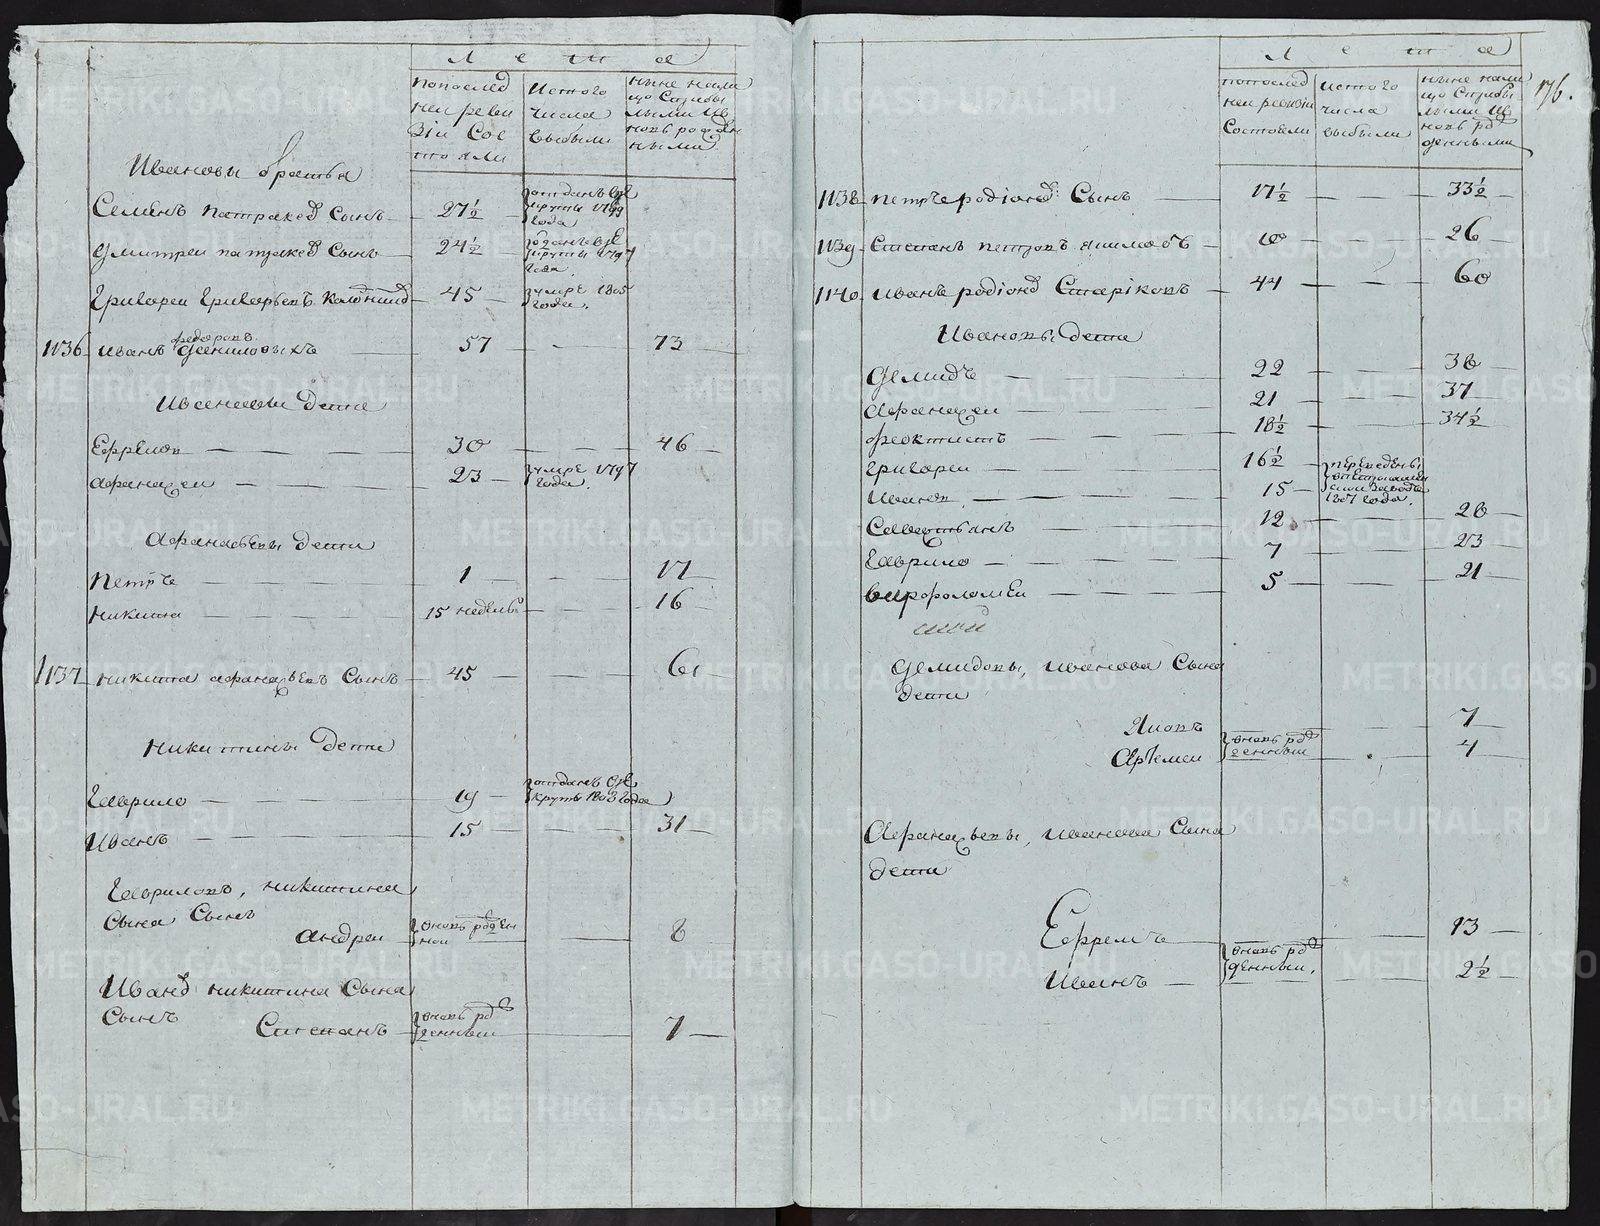 Лета
попослед
ней реви
зіи Сос
тояли
Истого
числа
выбыли
ныне нали
цо Стрибы
лыми ив
новь рожден
ными
Ивановы братья
Семенъ патракеев Сынъ 27½ отданъ вре
круты 1799
года
Дмитреи патракеев Сынъ 24½ отданъ вре
круты 1797
года
Григореи Григорьевъ 45 умре 1805
года.
федоровъ
1136 Иванъ Данииловыхъ 57 73
Ивановы дети
Ефремъ 30 46
Афанасеи 23 умре 1797
года.
Афанасьевы дети
Петръ 1 17
Никита 15 недель 16
1137 Никита Афанасьевъ Сынъ 45 61
Никитины дети
Гаврило 19 отданъ вре
круты 1803 года
Иванъ 15 31
Гавриловъ, никитина
Сына Сынъ
андреи вновь рожден
нои 8
Иванов никитина Сына
Сынъ
Степанъ вновь рож
денныи 7
176.
Лета
попослед
неи ревизіи
Состояли
Истого
числа
выбыли
ныне нали
цо Стрибы
лыми ив
новь рож
денными
1138 петръ родіонов: Сынъ 17½ 33½
1139 Степанъ петровъ 10 26
1140 Иванъ родіонов Старіковъ 44 60
Ивановы дети
Демидъ 22 38
Афанасеи 21 37
феоктистъ 18½ 34½
Григореи 16½ переведены
Иванъ 15 1807 года.
Савостьянъ 12 28
Гаврило 7 23
Варфоломеи 5 21
Демидовы, иванова Сына
дети
Яковъ 7
вновь рож
денныи
Артемеи 4
Афанасьевы, иванова Сына
дети
Ефремъ 13
вновь рож
денныи.
Иванъ 2½
METRIKI.GASO-URAL.RU